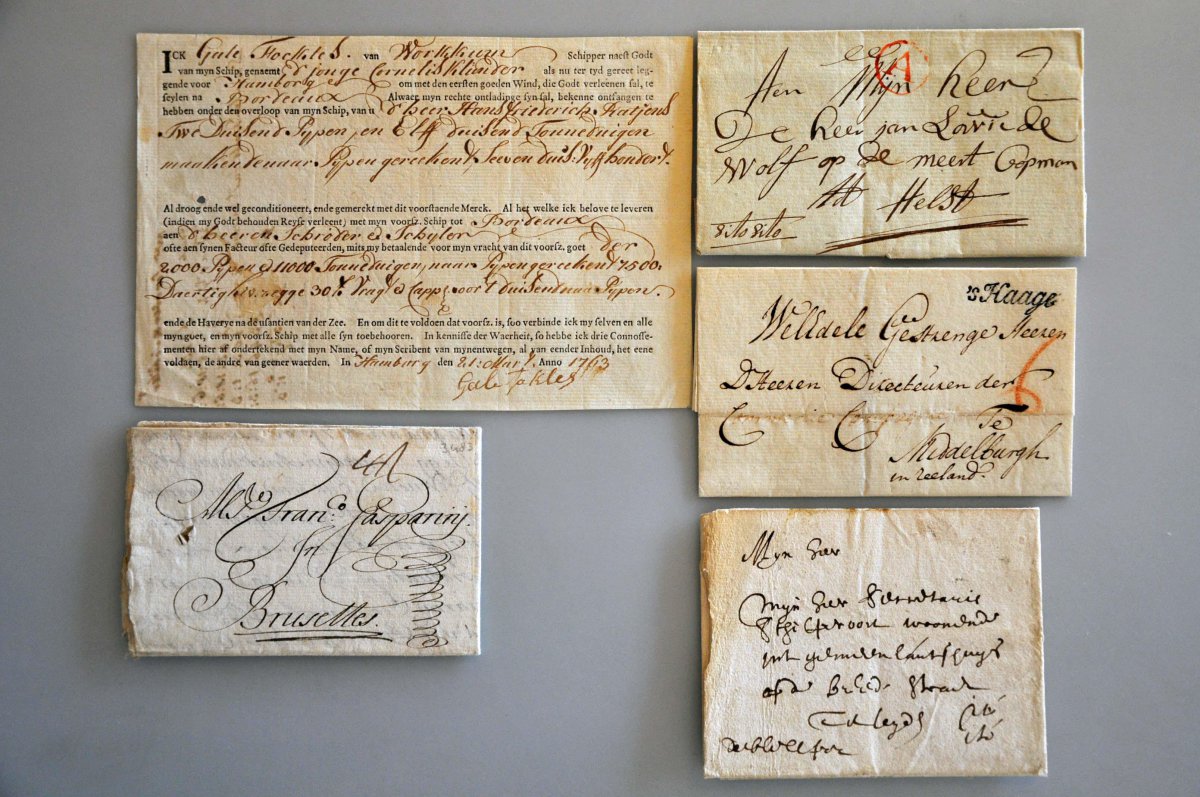 ICK Gale Fockles van Workkum Schipper naest Godt
van myn Schip, genaemt d' jonge Cornelis Klinder als nu ter tyd gereet leg-
gende voor Hamborg om met den eersten goeden Wind, die Godt verleenen sal, te
seylen na Bordeaux Alwaer myn rechte ontladinge syn sal, bekenne ontfangen te
hebben onder den overloop van myn Schip, van u d' heer Hans Frederick Ratjens
Twe Duisend Pypen, en Elff duisend Tonneduigen
maakende naar Pypen gereekent, Seeven duis: Vyffhondert.
Al droog ende wel geconditioneert, ende gemerckt met dit voorstaende Merck. Al het welke ick belove te leveren
(indien my Godt behouden Reyse verleent) met myn voorsz. Schip tot Bordeaux
aen d' heeren Schröder & Schyler
ofte aen synen Facteur ofte Gedeputeerden, mits my betaelende voor myn vracht van dit voorsz. goet der
2000 Pypen & 11000 Tonneduigen, naar Pypen gereekent 7500:
Daertigh segge 30 Vragt & Capp: voor 't duisend naa Pypen.
ende de Haverye na de usantien van der Zee. En om dit te voldoen dat voorsz. is, soo verbinde ick my selven en alle
myn goet, en myn voorsz. Schip met alle syn toebehooren. In kennisse der Waerheit, so hebbe ick drie Connosse-
menten hier af ondertekend met myn Name, of myn Scribent van mynentwegen, al van eender Inhoud, het eene
voldaen, de andre van geener waerden. In Hamburg den 21: Mart. Anno 1763
Gale fokles
A
Aen Mijn heer
De heer jan Lovis de
Wolf op de meert Copman
tot Helst
Cito Cito
'sHaage
WelEdele Gestrenge Heeren
D'Heeren Directeuren der
Commercie Compagnie
Te
Middelburgh
in Zeeland.
6
3403
Fran.co Gasparinij
In
Bruselles
Myn heer
Mijn heer Secretaris
woonende
int gemeenlantshuys
op de breede straet
Tot leyden
cito
cito